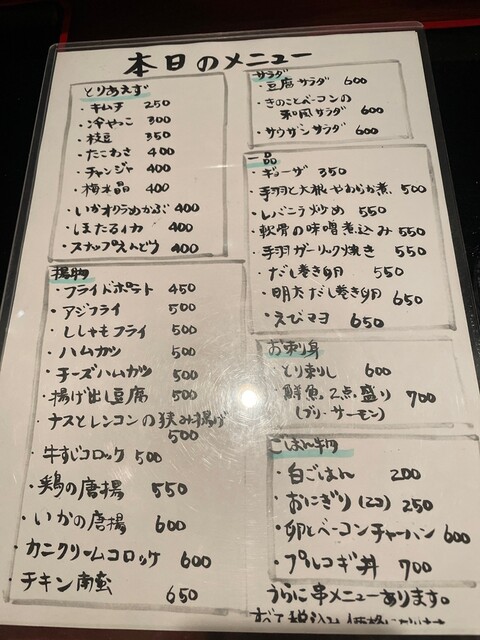 本日のメニュー
とりあえず
・キムチ 250
・冷やっこ 300
・枝豆 350
・たこわさ 400
・チャンジャ 400
・梅水晶 400
・いかオクラめかぶ 400
・ほたるイカ 400
・スナップえんどう 400
揚物
・フライドポテト 450
・アジフライ 500
・ししゃもフライ 500
・ハムカツ 500
・チーズハムカツ 500
・揚げ出し豆腐 500
・ナスとレンコンの挟み揚げ
500
・牛すじコロッケ 500
・鶏の唐揚 550
・いかの唐揚 600
・カニクリームコロッケ 600
・チキン南蛮 650
サラダ
・豆腐サラダ 600
・きのことベーコンの
和風サラダ 600
・サウザンサラダ 600
一品
・ギョーザ 350
・手羽と大根やわらか煮 500
・レバニラ炒め 550
・軟骨の味噌煮込み 550
・手羽ガーリック焼き 550
・だし巻き卵 550
・明太だし巻き卵 650
・えびマヨ 650
お刺り身
・とり刺し 600
・鮮魚2点盛り 700
(ブリ・サーモン)
ごはん物
・白ごはん 200
・おにぎり(2コ) 250
・卵とベーコンチャーハン 600
・プルコギ丼 700
うらに串メニューあります。
すべて税込み価格に